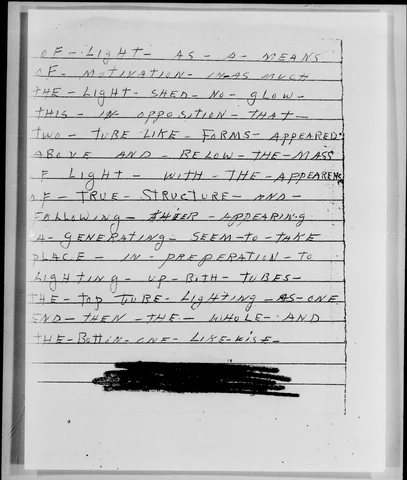 OF - LIGHT - AS - A - MEANS
OF - MOTIVATION - IN-AS MUCH
THE - LIGHT - SHED - NO - GLOW -
THIS - IN - OPPOSITION - THAT -
TWO - TUBE LIKE - FORMS - APPEARED
ABOVE AND - BELOW - THE - MASS
OF LIGHT - WITH - THE - APPEARENC
OF - TRUE - STRUCTURE - AND -
FALLOWING - THIER - APPEARING
A - GENERATING - SEEM - TO - TAKE
PLACE - IN - PREPERATION - TO
LIGHTING - UP - BOTH - TUBES -
THE - TOP TUBE - LIGHTING - AS - ONE
END - THEN - THE - WHOLE - AND
THE - BOTTIN - ONE - LIKE - WISE -